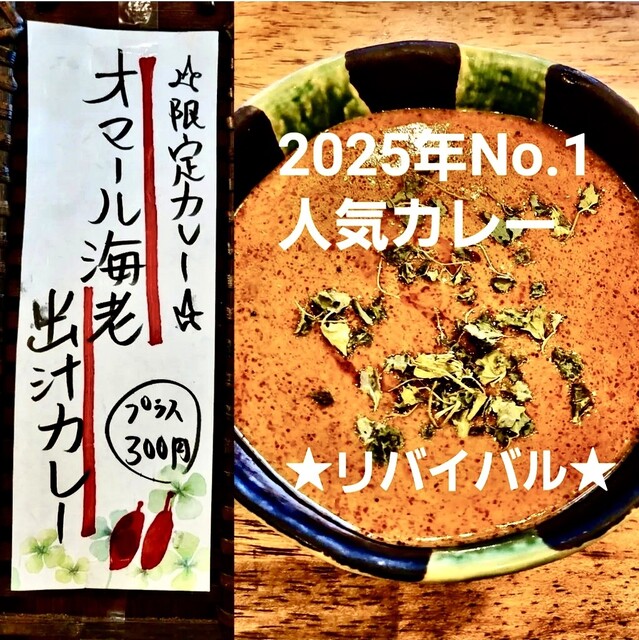 ☆限定カレー☆
オマール海老
出汁カレー
プラス
300円
2025年No.1
人気カレー
★リバイバル★